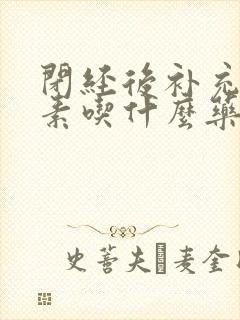 閉経後补充
素喫什麼藥
史蒈夫麦奎